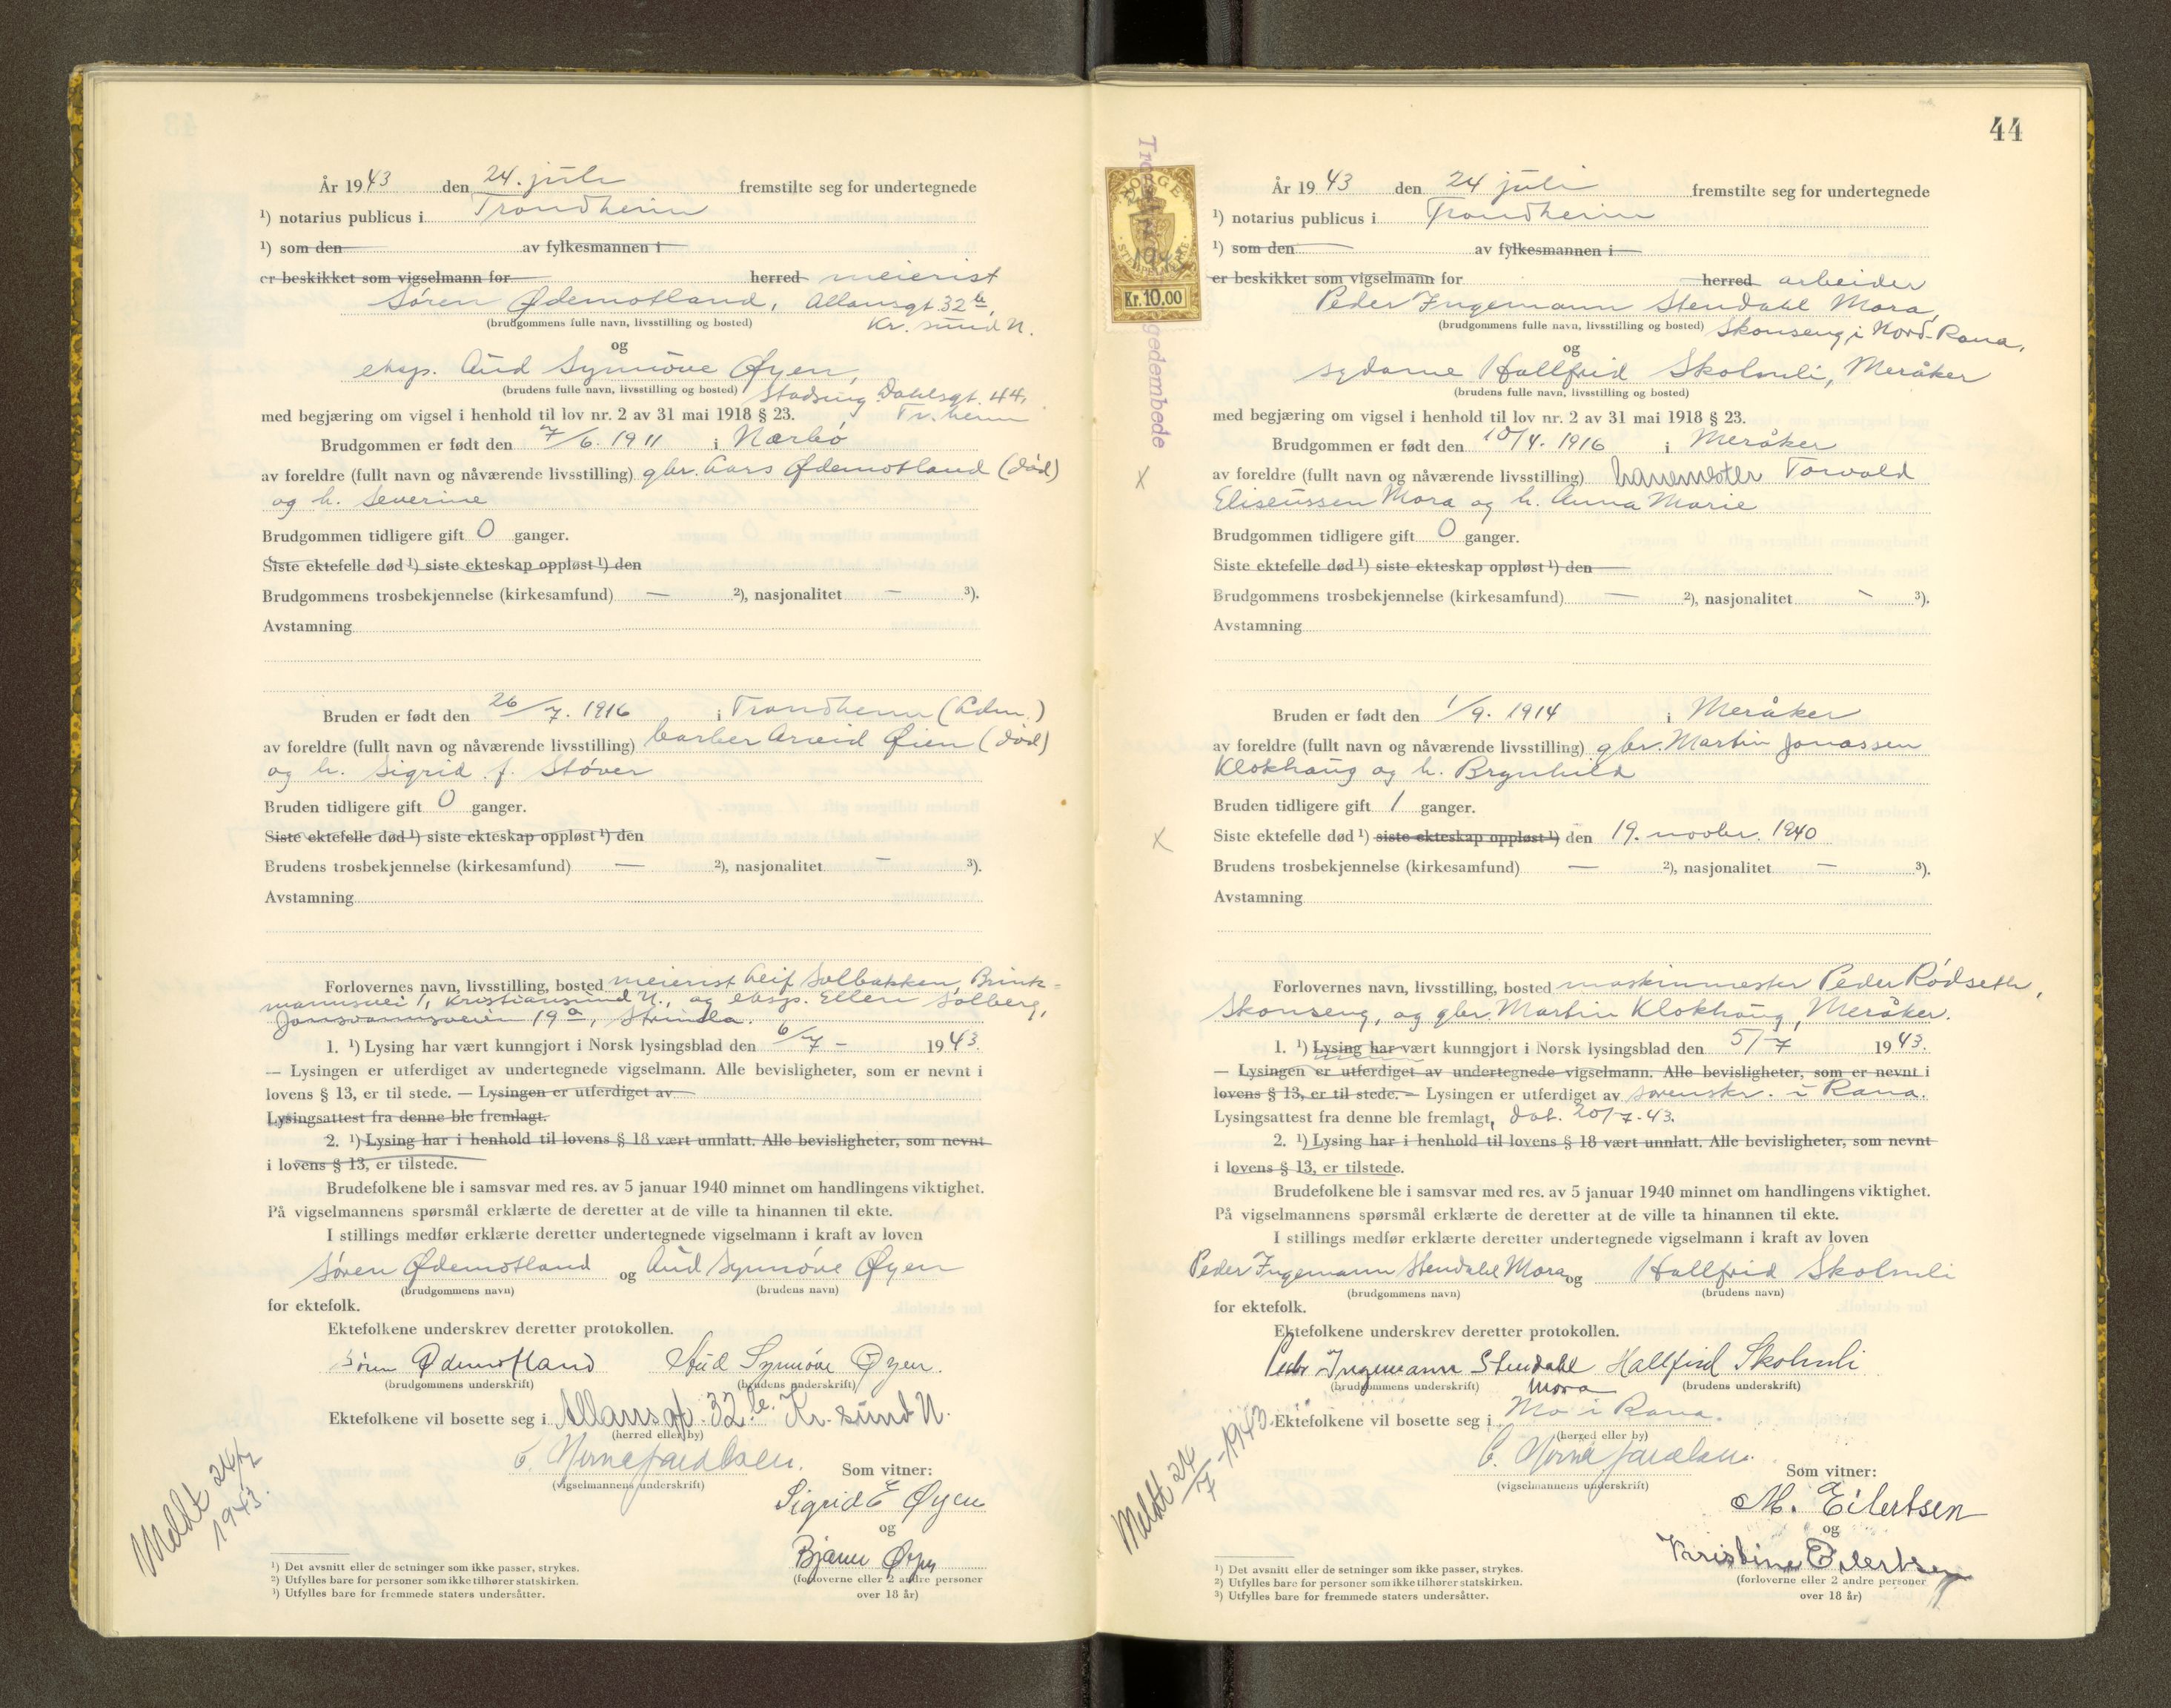 År 1943 den 24. juli fremstilte seg for undertegnede
¹) notarius publicus i Trondheim
¹) som den av fylkesmannen i
er beskikket som vigselmann for herred meierist
Søren Ødemotland, Allansgt. 32 b,
(brudgommens fulle navn, livsstilling og bosted) Kr. sund N.
og
eksp. Aud Synnøve Øyen,
(brudens fulle navn, livsstilling og bosted) Stadsing. Dahlsgt. 44,
med begjæring om vigsel i henhold til lov nr. 2 av 31 mai 1918 § 23. Tr.heim
Brudgommen er født den 7/6. 1911 i Nærbø
av foreldre (fullt navn og nåværende livsstilling) gbr. Lars Ødemotland (død)
og h. Severine
Brudgommen tidligere gift 0 ganger.
Siste ektefelle død ¹) siste ekteskap oppløst ¹) den
Brudgommens trosbekjennelse (kirkesamfund) — ²), nasjonalitet — ³).
Avstamning
Bruden er født den 26/7. 1916 i Trondheim (Adm.)
av foreldre (fullt navn og nåværende livsstilling) barber Arvid Øien (død)
og h. Sigrid f. Støver
Bruden tidligere gift 0 ganger.
Siste ektefelle død ¹) siste ekteskap oppløst ¹) den
Brudens trosbekjennelse (kirkesamfund) — ²), nasjonalitet — ³).
Avstamning
Forlovernes navn, livsstilling, bosted meierist Leif Solbakken, Brink-
mannsvei 1, Kristiansund N., og eksp. Ellen Solberg,
Jonsvannsveien 19 a, Strinda.
1. ¹) Lysing har vært kunngjort i Norsk lysingsblad den 6/7 – 1943.
— Lysingen er utferdiget av undertegnede vigselmann. Alle bevisligheter, som er nevnt i
lovens § 13, er til stede. — Lysingen er utferdiget av
Lysingsattest fra denne ble fremlagt.
2. ¹) Lysing har i henhold til lovens § 18 vært unnlatt. Alle bevisligheter, som nevnt
i lovens § 13, er tilstede.
Brudefolkene ble i samsvar med res. av 5 januar 1940 minnet om handlingens viktighet.
På vigselmannens spørsmål erklærte de deretter at de ville ta hinannen til ekte.
I stillings medfør erklærte deretter undertegnede vigselmann i kraft av loven
Søren Ødemotland og Aud Synnøve Øyen
(brudgommens navn) (brudens navn)
for ektefolk.
Ektefolkene underskrev deretter protokollen.
Søren Ødemotland Aud Synnøve Øyen.
(brudgommens underskrift) (brudens underskrift)
Ektefolkene vil bosette seg i Allansgt. 32 b. Kr. sund N.
(herred eller by)
(vigselmannens underskrift) Som vitner:
Meldt 24/7 1943.
Sigrid E Øyen
og
Bjarne Øyen
(forloverne eller 2 andre personer
over 18 år)
¹) Det avsnitt eller de setninger som ikke passer, strykes.
²) Utfylles bare for personer som ikke tilhører statskirken.
³) Utfylles bare for fremmede staters undersåtter.
44
NORGE
STEMPELMERKE
Kr. 10.00
År 1943 den 24 juli fremstilte seg for undertegnede
¹) notarius publicus i Trondheim
¹) som den av fylkesmannen i
er beskikket som vigselmann for herred arbeider
Peder Ingemann Stendahl Mora,
(brudgommens fulle navn, livsstilling og bosted) Skonseng i Nord-Rana,
og
sydame Hallfrid Skolmli, Meråker
(brudens fulle navn, livsstilling og bosted)
med begjæring om vigsel i henhold til lov nr. 2 av 31 mai 1918 § 23.
Brudgommen er født den 10/4. 1916 i Meråker
X av foreldre (fullt navn og nåværende livsstilling) banemester Torvald
Eliseussen Mora og h. Anna Marie
Brudgommen tidligere gift 0 ganger.
Siste ektefelle død ¹) siste ekteskap oppløst ¹) den
Brudgommens trosbekjennelse (kirkesamfund) — ²), nasjonalitet – ³).
Avstamning
Bruden er født den 1/9. 1914 i Meråker
av foreldre (fullt navn og nåværende livsstilling) gbr. Martin Jonassen
Klokhaug og h. Brynhild
Bruden tidligere gift 1 ganger.
X Siste ektefelle død ¹) siste ekteskap oppløst ¹) den 19. novbr. 1940
Brudens trosbekjennelse (kirkesamfund) — ²), nasjonalitet — ³).
Avstamning
Forlovernes navn, livsstilling, bosted maskinmester Peder Rødseth,
Skonseng, og gbr. Martin Klokhaug, Meråker.
1. ¹) Lysing har vært kunngjort i Norsk lysingsblad den 5/7 1943.
— Lysingen er utferdiget av undertegnede vigselmann. Alle bevisligheter, som er nevnt i
lovens § 13, er til stede. — Lysingen er utferdiget av sorenskr. i Rana.
Lysingsattest fra denne ble fremlagt, dat. 20/7-43.
2. ¹) Lysing har i henhold til lovens § 18 vært unnlatt. Alle bevisligheter, som nevnt
i lovens § 13, er tilstede.
Brudefolkene ble i samsvar med res. av 5 januar 1940 minnet om handlingens viktighet.
På vigselmannens spørsmål erklærte de deretter at de ville ta hinannen til ekte.
I stillings medfør erklærte deretter undertegnede vigselmann i kraft av loven
Peder Ingemann Stendahl Mora og Hallfrid Skolmli
(brudgommens navn) (brudens navn)
for ektefolk.
Ektefolkene underskrev deretter protokollen.
Peder Ingemann Stendahl Hallfrid Skolmli
(brudgommens underskrift) Mora (brudens underskrift)
Ektefolkene vil bosette seg i Mo i Rana.
(herred eller by)
(vigselmannens underskrift) Som vitner:
Meldt 24/7-1943.
M. Eilertsen
og
Kristine Eilertsen
(forloverne eller 2 andre personer
over 18 år)
¹) Det avsnitt eller de setninger som ikke passer, strykes.
²) Utfylles bare for personer som ikke tilhører statskirken.
³) Utfylles bare for fremmede staters undersåtter.